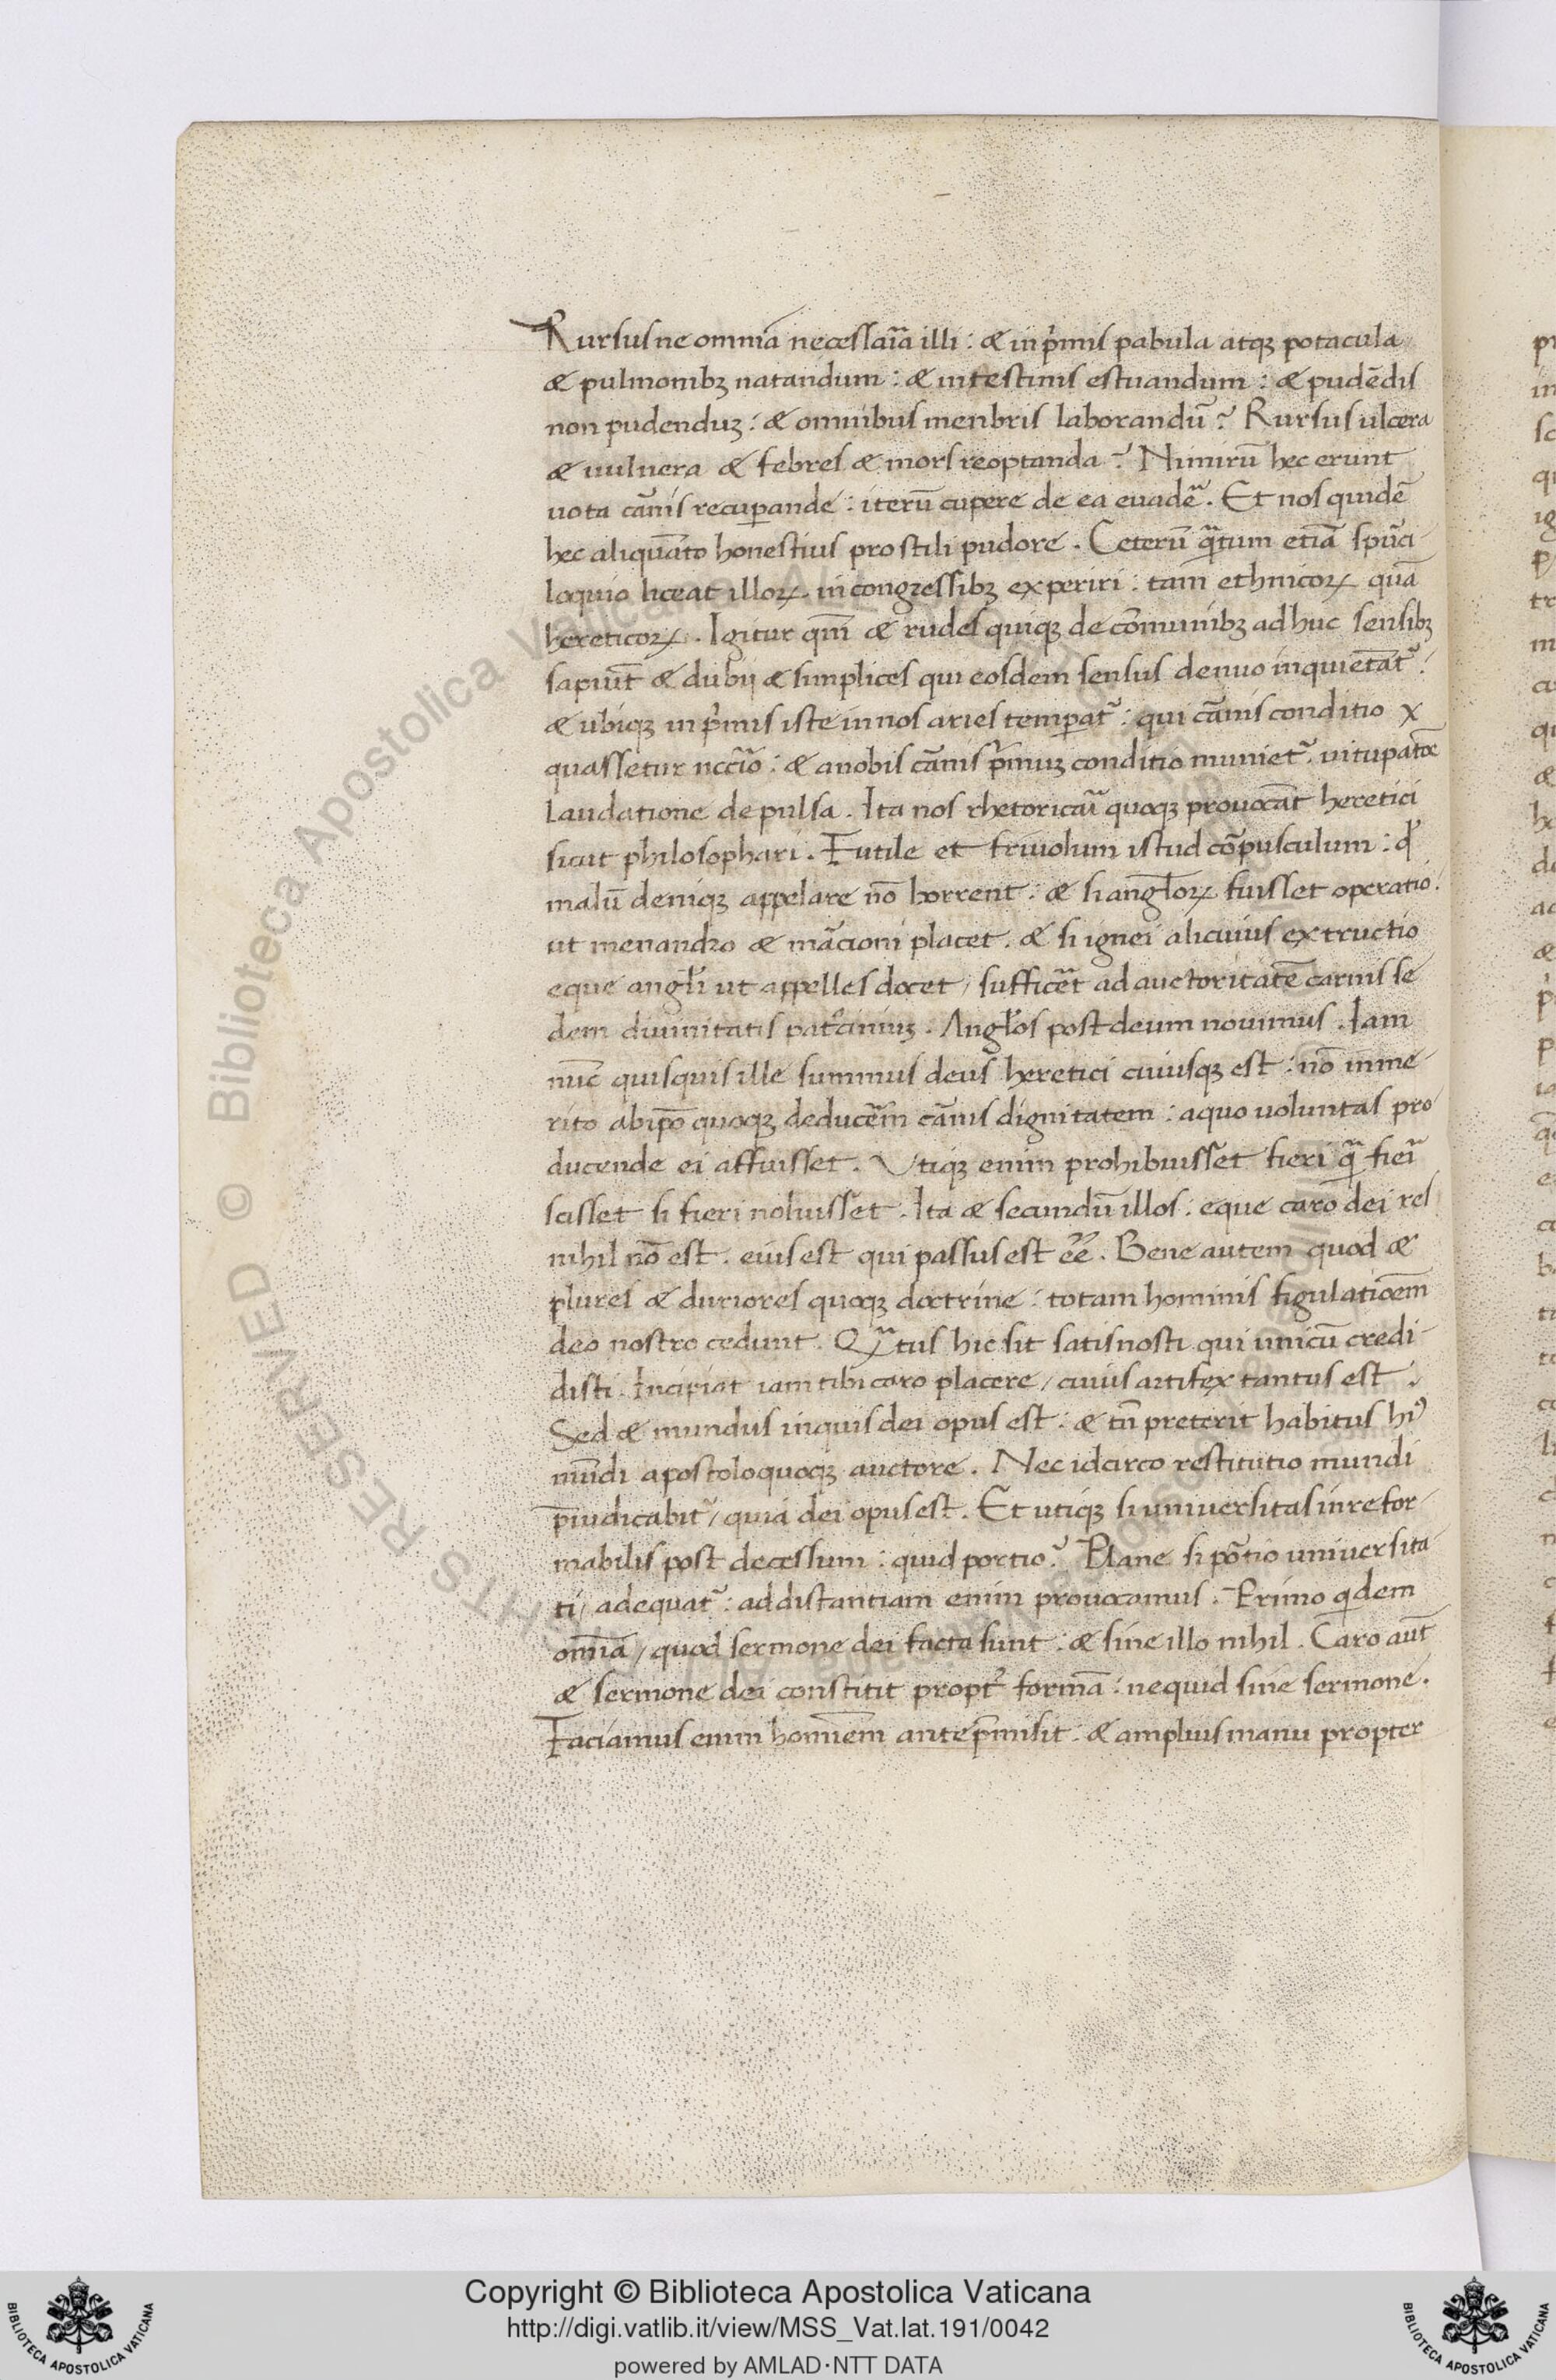 Rursus ne omnia necessaͬia illi : & in pͥmis pabula atqꝫ potacula
& pulmonibꝫ natandum : & intestinis estuandum : & pudēdis
non pudenduꝫ : & omnibus menbris laborandū ? Rursus ulcera
& uulnera & febres & mors reoptanda ? Nimirū hec erunt
uota cͣnis recuꝑande : iterū cupere de ea euadeͬ . Et nos quidē
hec aliquāto honestius pro stili pudore . Ceterū qͣtum etiā spuͬci
loquio liceat illoꝝ in congressibꝫ experiri : tam ethnicoꝝ quā
hereticoꝝ . Igitur qm̄ & rudes quiqꝫ de cōmunibꝫ ad huc sensibꝫ
sapiūt & dubij & simplices qui eosdem sensus denuo inquietātᷣ ?
& ubiqꝫ in pͥmis iste in nos aries temꝑatᷣ : qui cͣnis conditio x
quassetur nccͣio : & a nobis cͣnis pͥmuꝫ conditio munietᷣ . uituꝑatōe
laudatione depulsa . Ita nos rhetoricaͬi quoqꝫ prouocāt heretici
sicut philosophari . Futile et friuolum istud cōꝑpusculum : qď
malū deniqꝫ appelare nō horrent : & si angl̄oꝝ fuisset operatio .
ut menandro & mͣcioni placet . & si ignei alicuius extructio
eque angl̄i ut appelles docet / sufficeͬt ad auctoritatē carnis se
dem diuinitatis patͦciniuꝫ . Angl̄os post deum nouimus . Iam
nūc quisquis ille summus deus heretici cuiusqꝫ est : nō inme
rito ab ip̄o quoqꝫ deduceͬm cͣnis dignitatem : a quo uoluntas pro
ducende ei affuisset . Utiqꝫ enim prohibuisset fieri qͣ fieͬi
scisset si fieri noluisset . Ita & secundū illos : eque caro dei res
nihil nō est . eius est qui passus est eē . Bene autem quod &
plures & duriores quoqꝫ doctrine : totam hominis figulatiōem
deo nostro cedunt . Qͣtus hic sit satis nosti qui unicū credi
disti . Incipiat iam tibi caro placere / cuius artifex tantus est .
Sed & mundus inquis dei opus est : & tn̄ preterit habitus hiꝰ
mūdi apostolo quoqꝫ auctore . Nec idcirco restitutio mundi
p̄iudicabitᷣ / quia dei opus est . Et utiqꝫ si uniuersitas inrefor
mabilis post decessum : quid portio ? Plane si poͬtio uniuersita
ti / adequatᷣ : ad distantiam enim prouocamus . Primo qͥdem
om̄ia / quod sermone dei facta sunt : & sine illo nihil . Caro aūt
& sermone dei constitit proptͬ formā : nequid sine sermone .
Faciamus enim homiēm ante p̄misit . & amplius manu propter
Copyright © Biblioteca Apostolica Vaticana
http://digi.vatlib.it/view/MSS_Vat.lat.191/0042
powered by AMLAD·NTT DATA